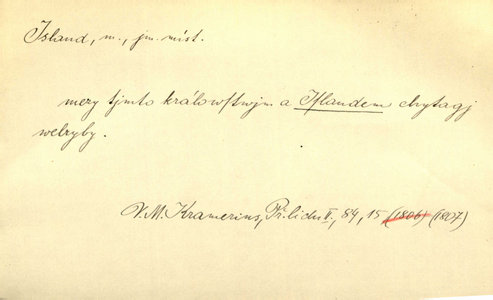 Island, m., jm. míst.
mezy tjmto králowstwjm a Islandem chytagj
welryby.
V. M. Kramerius, Př. lidu II, 84, 15 (1806) (1807)